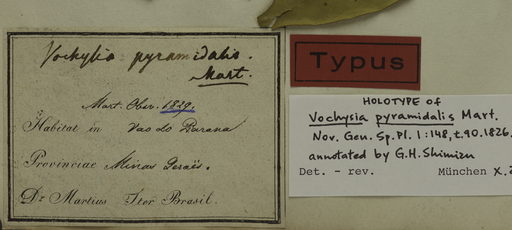 Vochysia pyramidalis.
Mart.
Mart. Obs. 1829.
Habitat in Vao do Parana
Provinciae Minas Geraës.
Dr Martius Iter Brasil.
Typus
HOLOTYPE OF
Vochysia pyramidalis Mart.
Nov. Gen. Sp. Pl. 1:148, t.90. 1826.
annotated by G.H. Shimizu
Det. - rev. München X.